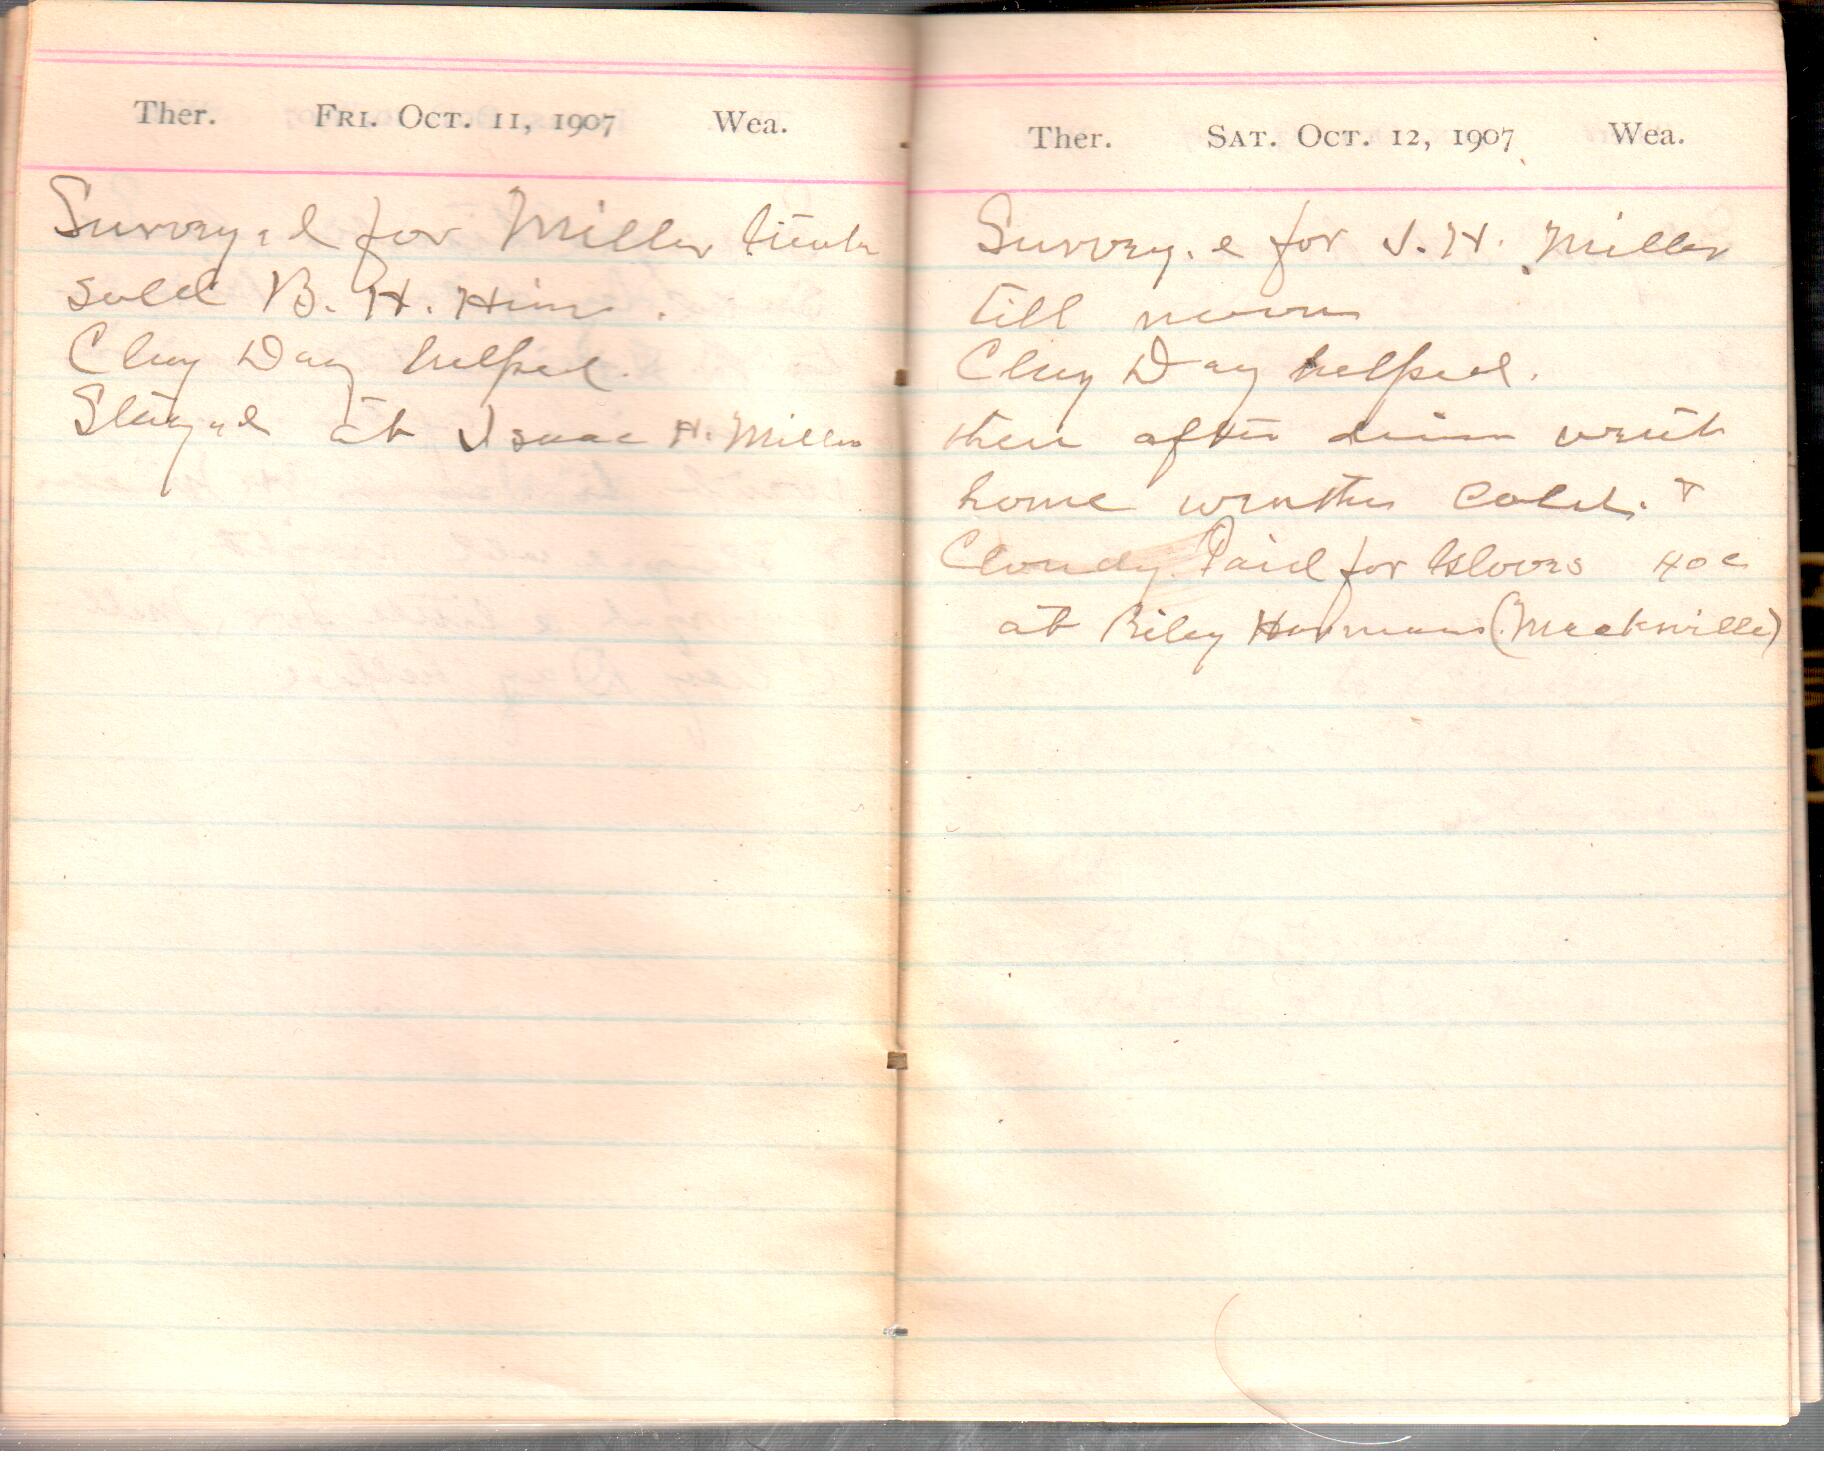 Ther. Fri. Oct. 11, 1907 Wea.
Surveyed for Miller
sold B. H. Hines.
Clay Day helped.
Stayed at Isaac H. Miller
Ther. Sat. Oct. 12, 1907 Wea.
Surveyed for I. H. Miller
till noon
Clay Day helped.
then after dinner went
home weather cold. +
Cloudy. Paid for Gloves 40c
at Riley Harmans (Meekville)